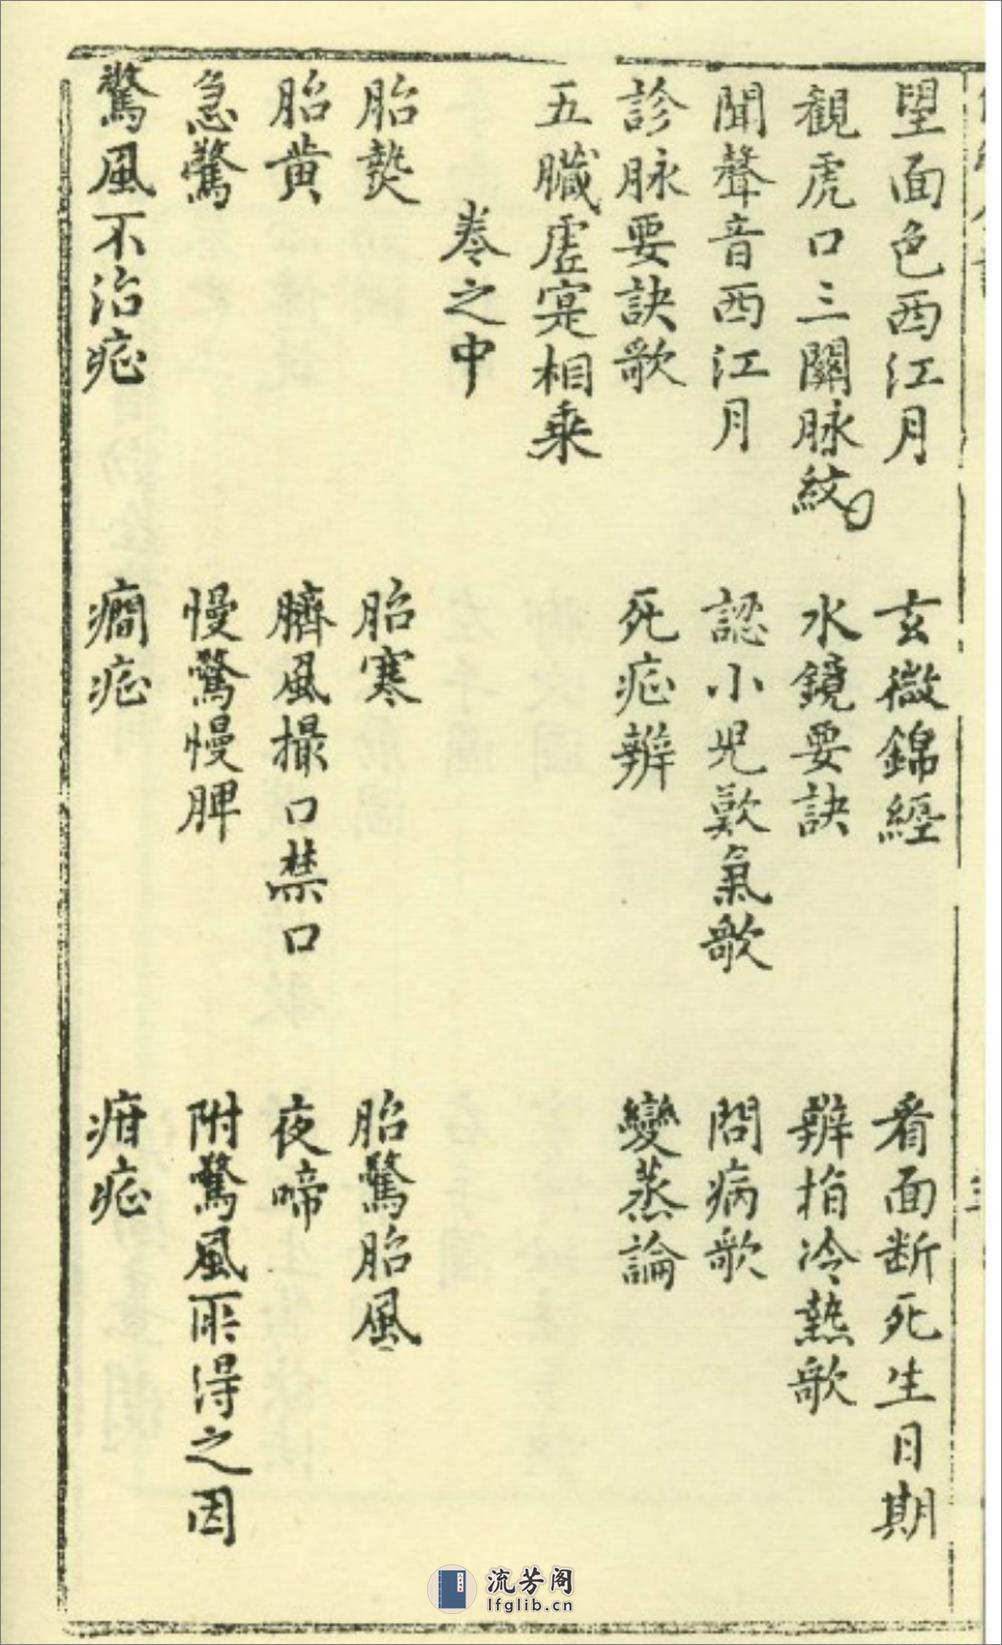 望面色西江月　玄微錦經　看面断死生日期
觀虎口三關脉紋　水鏡要訣　辨指冷熱歌
聞聲音西江月　認小児歎氣歌　問病歌
診脉要訣歌　死症辨　變蒸論
五臓虚寔相乘
卷之中
胎熱　胎寒　胎驚胎風
胎黄　臍風撮口禁口　夜啼
急驚　慢驚慢脾　附驚風所得之因
驚風不治症　癇症　疳症
流芳阁
lfglib.cn